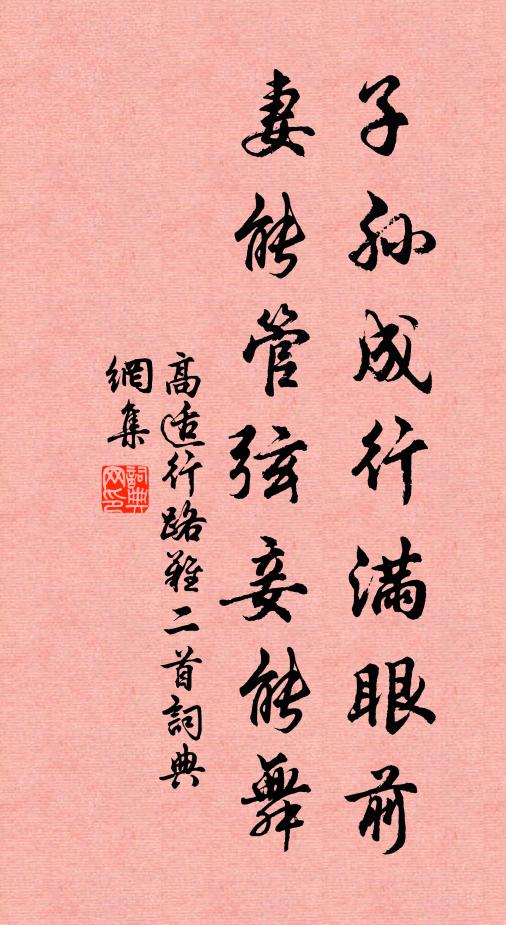 子孙成行满眼前
妻能管弦妾能舞
高适行路难二首詞典
網集
詞典
网印